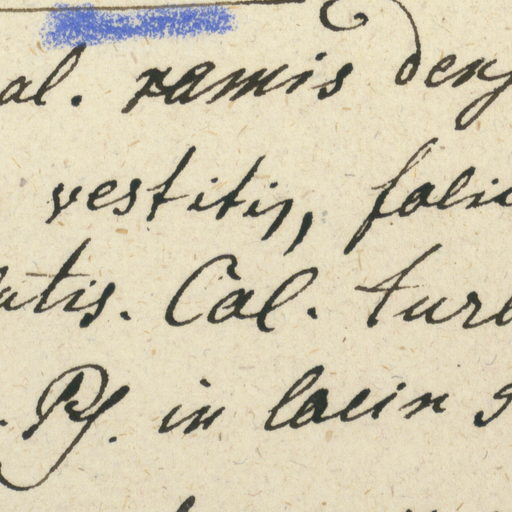 al. ramis dens
vestitis, folii
latis. Cal. turb
Pf. in lacin